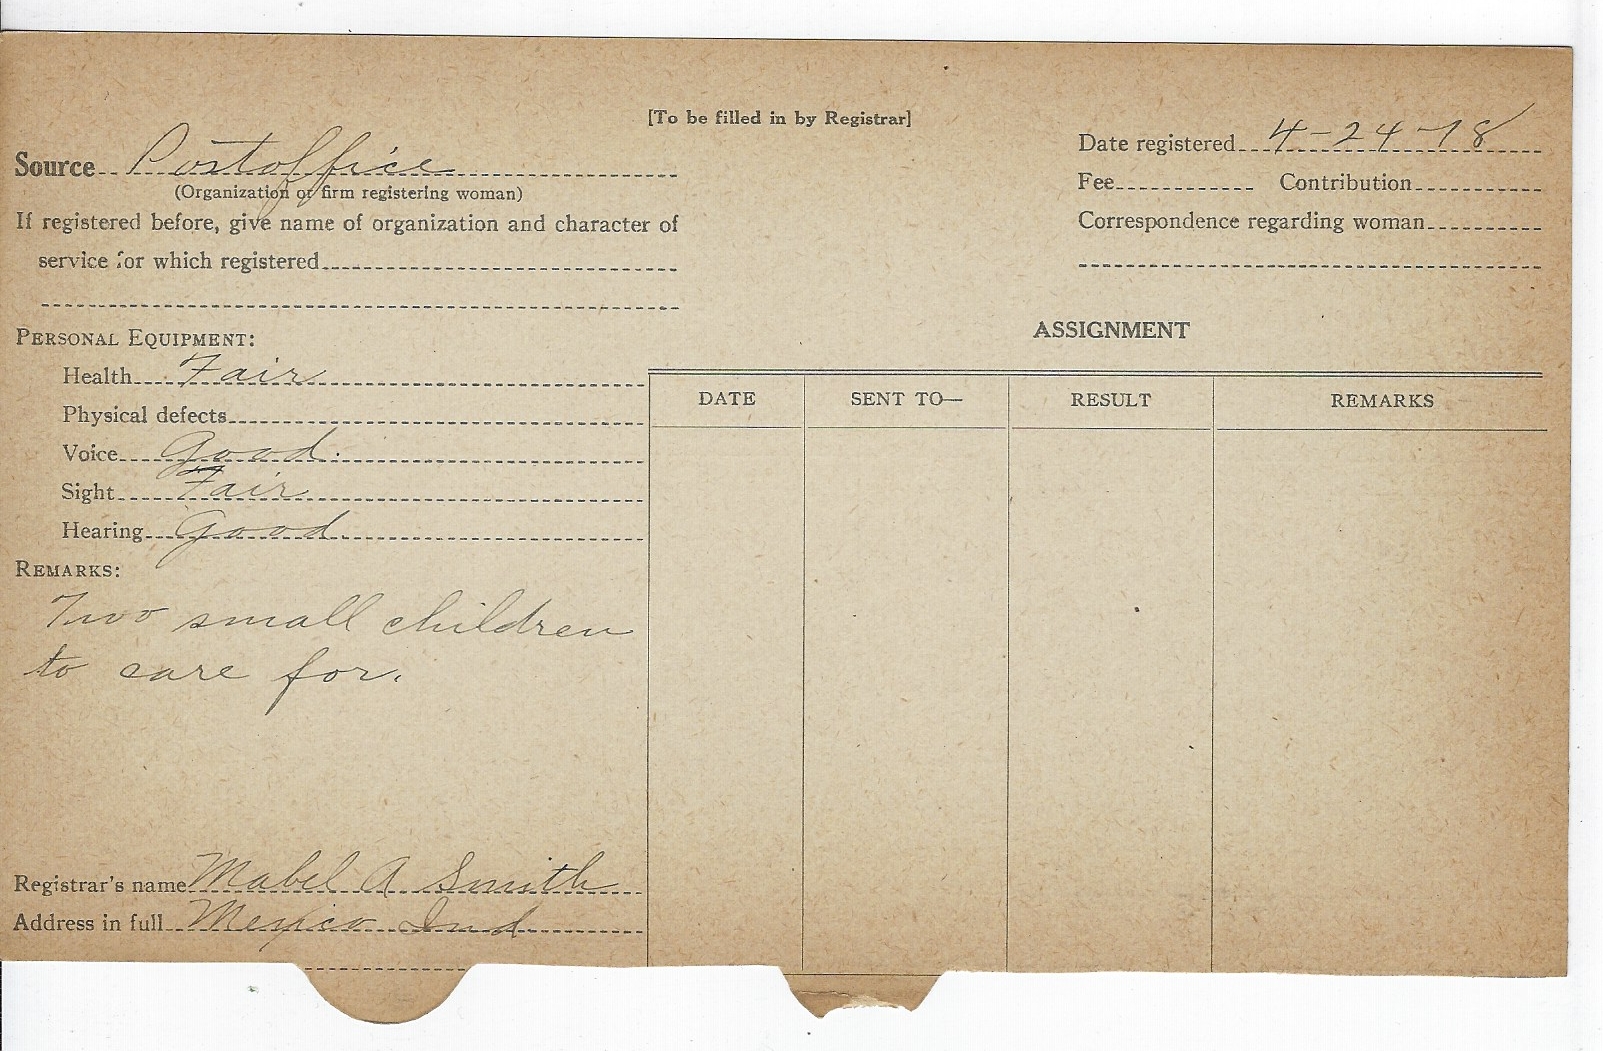 [To be filled in by Registrar]
Source Postoffice
(Organization or firm registering woman)
If registered before, give name of organization and character of
service for which registered
Date registered 4-24-18
Fee Contribution
Correspondence regarding woman
PERSONAL EQUIPMENT:
Health Fair
Physical defects
Voice Good.
Sight Fair
Hearing Good
REMARKS:
Two small children
to care for.
Registrar's name Mabel A Smith
Address in full Mexico Ind
ASSIGNMENT
DATE SENT TO— RESULT REMARKS